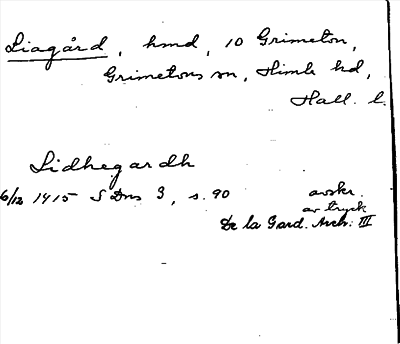 Liagård, hmd, 10 Grimeton,
Grimetons sn, Himle hd,
Hall. l.
Lidhegardh
6/12 1415 SDns 3, s. 90 avskr.
av tryck
De la Gard. Arch: III